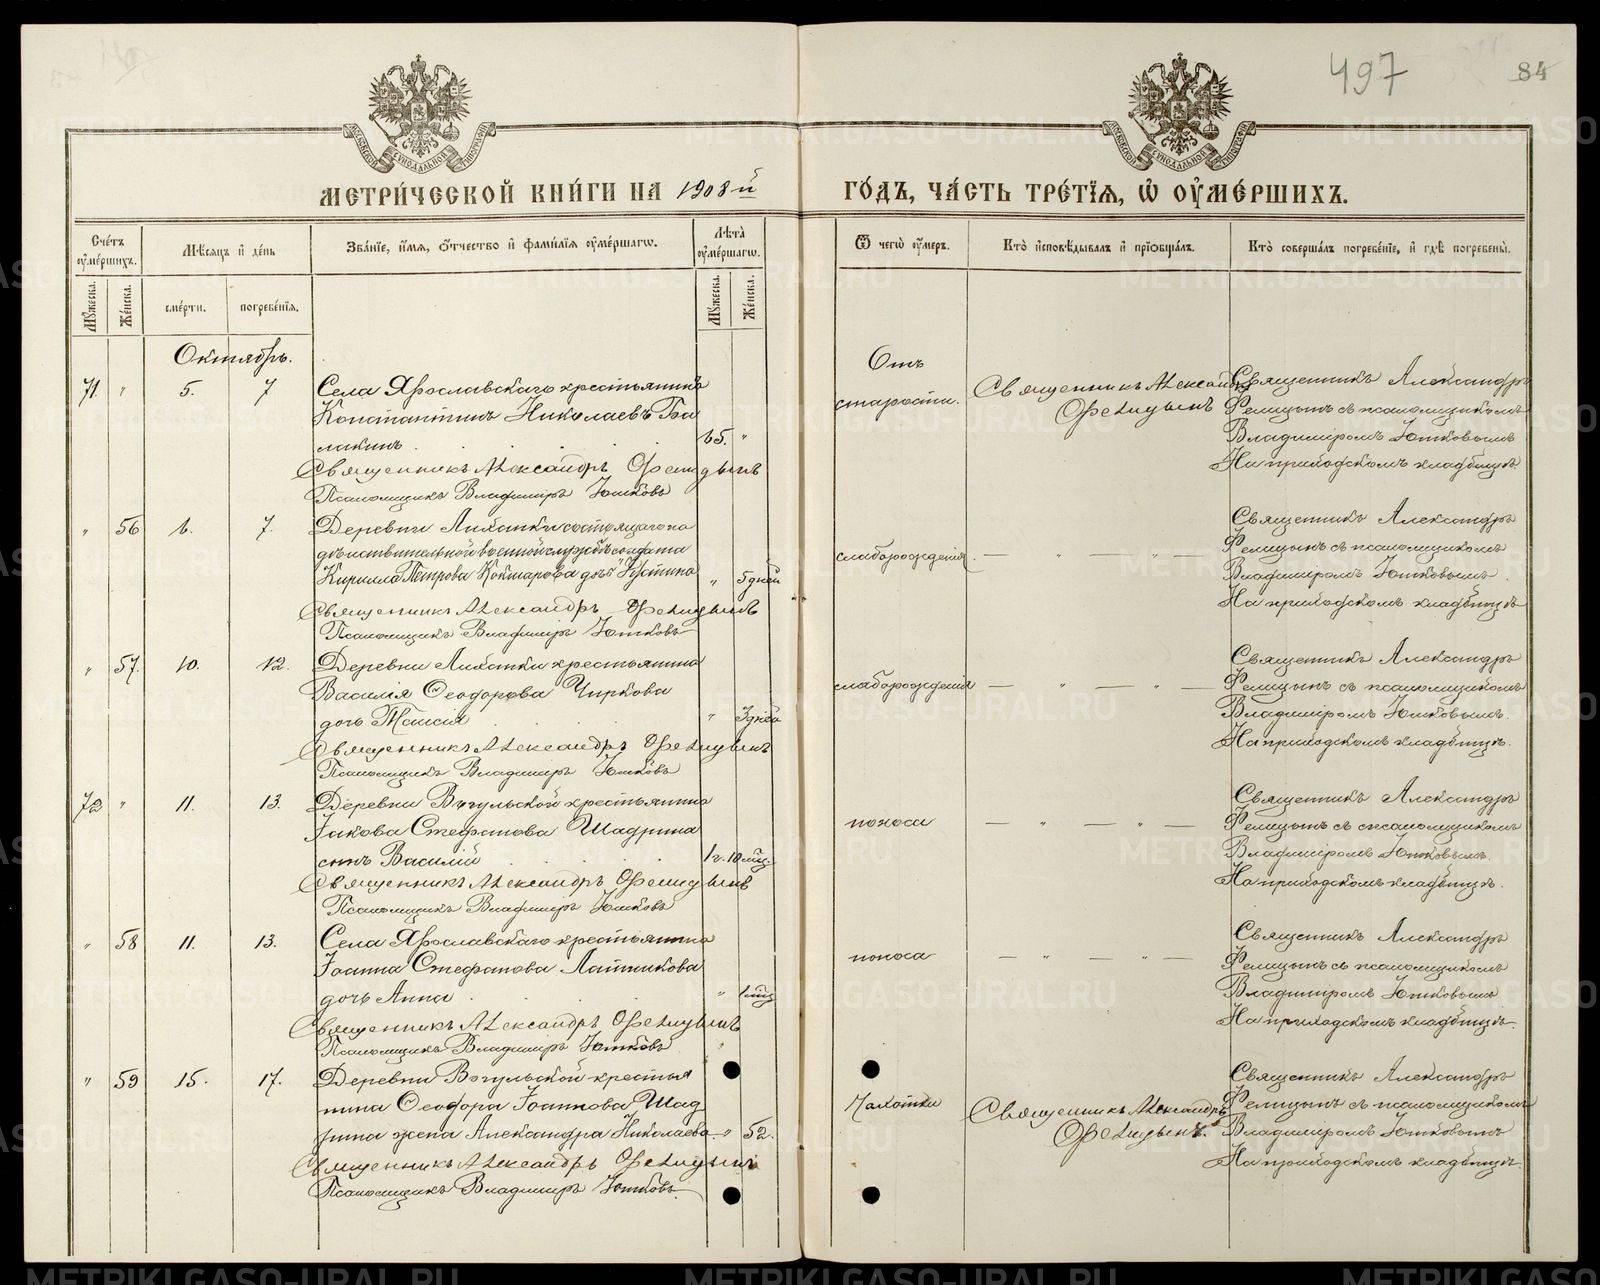 497
84
МЕТРИЧЕСКОЙ КНИГИ НА 1908-й ГОДЪ, ЧАСТЬ ТРЕТІЯ, Ѿ ОУМЕРШИХЪ.
Счетъ оумершихъ.
Мѣсяцъ и день
Званіе, имя, отчество и фамилія оумершагѡ.
Лѣта оумершагѡ.
Ѿ чегѡ оумеръ.
Кто исповѣдывалъ и пріобщалъ.
Кто совершалъ погребеніе, и гдѣ погребены.
Мужеска.
Женска.
смерти.
погребенія.
Мужеска.
Женска.
Октябрь.
71 " 5. 7
Села Ярославскаго крестьянинъ
Константинъ Николаевъ Ба
лакинъ . . . . 65. "
Священникъ Александръ Фелицынъ
Псаломщикъ Владиміръ Ютковъ
Отъ
старости.
Священникъ Александръ
Фелицынъ
Священникъ Александръ
Фелицынъ съ псаломщикомъ
Владиміромъ Ютковымъ
На приходскомъ кладбищѣ
" 56 6. 7.
Деревни Лихатки состоящаго на
дѣйствительной военной службѣ солдата
Кирилла Петрова Кокшарова дочь " 5 дней
Священникъ Александръ Фелицынъ
Псаломщикъ Владиміръ Ютковъ
слаборожденія. — " — " —
Священникъ Александръ
Фелицынъ съ псаломщикомъ
Владиміромъ Ютковымъ
На приходскомъ кладбищѣ
" 57. 10. 12.
Деревни Лихатки крестьянина
Василія Ѳеодорова Чиркова
дочь Таисія . . . " 3 дней
Священникъ Александръ Фелицынъ
Псаломщикъ Владиміръ Ютковъ
слаборожденія — " — " —
Священникъ Александръ
Фелицынъ съ псаломщикомъ
Владиміромъ Ютковымъ.
На приходскомъ кладбищѣ.
72 " 11. 13.
Деревни Вогульской крестьянина
Іакова Стефанова Шадрина
сынъ Василій . . . . 1 г. 10 мѣс.
Священникъ Александръ Фелицынъ
Псаломщикъ Владиміръ Ютковъ
поноса — " — " —
Священникъ Александръ
Фелицынъ съ псаломщикомъ
Владиміромъ Ютковымъ.
На приходскомъ кладбищѣ.
" 58 11. 13.
Села Ярославскаго крестьянина
Іоанна Стефанова Лаптикова
дочь Анна . . . . " 1 мѣс
Священникъ Александръ Фелицынъ
Псаломщикъ Владиміръ Ютковъ
поноса — " — " —
Священникъ Александръ
Фелицынъ съ псаломщикомъ
Владиміромъ Ютковымъ
На приходскомъ кладбищѣ.
" 59 15. 17.
Деревни Вогульской крестья
нина Ѳеодора Іоаннова Шад
рина жена Александра Николаева " 52.
Священникъ Александръ Фелицынъ
Псаломщикъ Владиміръ Ютковъ.
Чахотки
Священникъ Александръ
Фелицынъ.
Священникъ Александръ
Фелицынъ съ псаломщикомъ
Владиміромъ Ютковымъ
На приходскомъ кладбищѣ.
METRIKI.GASO-URAL.RU